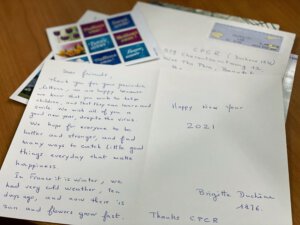 Dear friends,
Thank you for your periodic
letters, we are happy to want
know that you wish to help
children, and that they can learn and
smile. We wish all of you a
good new year, despite the virus.
We hope for everyone to be
better and stronger, and find
many ways to catch little good
things everyday that make
happiness.
In France it is winter, we
had very cold weather, ten
days ago, and now there is
sun and flowers grow fast.
CPCR
Happy New Year
2021
Brigitte Duchêne
1816.
Thanks CPCR